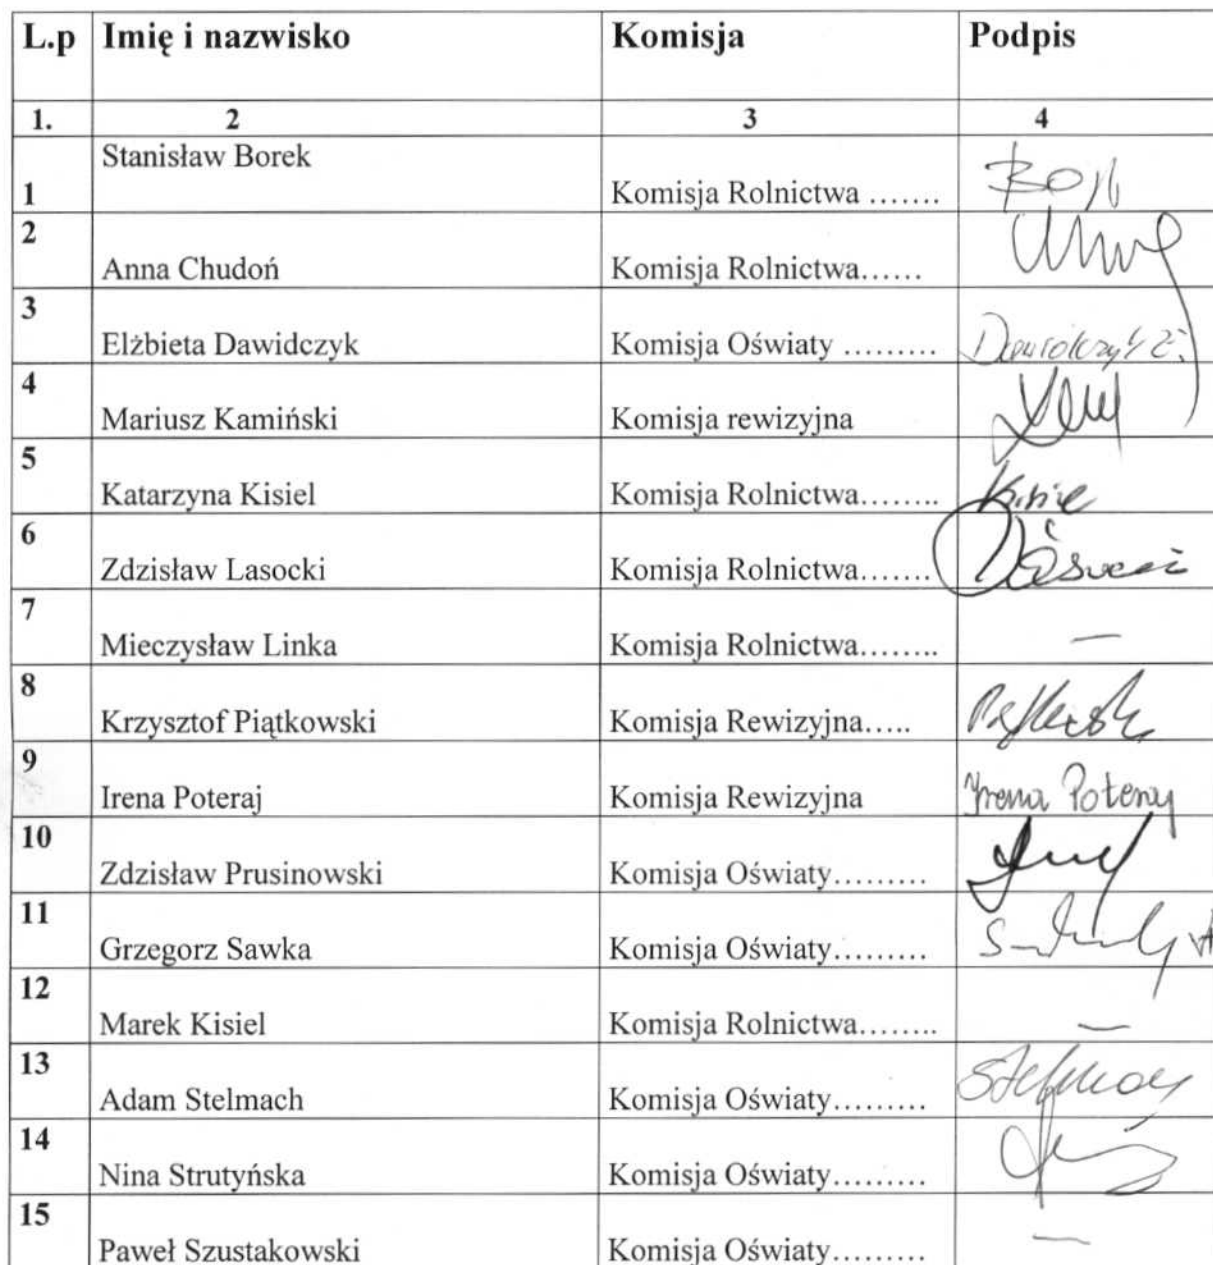 L.p Imię i nazwisko Komisja Podpis
1. 2 3 4
1 Stanisław Borek Komisja Rolnictwa .......
2 Anna Chudoń Komisja Rolnictwa......
3 Elżbieta Dawidczyk Komisja Oświaty ......... Dawidczyk E.
4 Mariusz Kamiński Komisja rewizyjna
5 Katarzyna Kisiel Komisja Rolnictwa........ Kisiel
6 Zdzisław Lasocki Komisja Rolnictwa.......
7 Mieczysław Linka Komisja Rolnictwa........ —
8 Krzysztof Piątkowski Komisja Rewizyjna.....
9 Irena Poteraj Komisja Rewizyjna Irena Poteraj
10 Zdzisław Prusinowski Komisja Oświaty.........
11 Grzegorz Sawka Komisja Oświaty.........
12 Marek Kisiel Komisja Rolnictwa........ —
13 Adam Stelmach Komisja Oświaty......... Stelmach
14 Nina Strutyńska Komisja Oświaty.........
15 Paweł Szustakowski Komisja Oświaty......... —